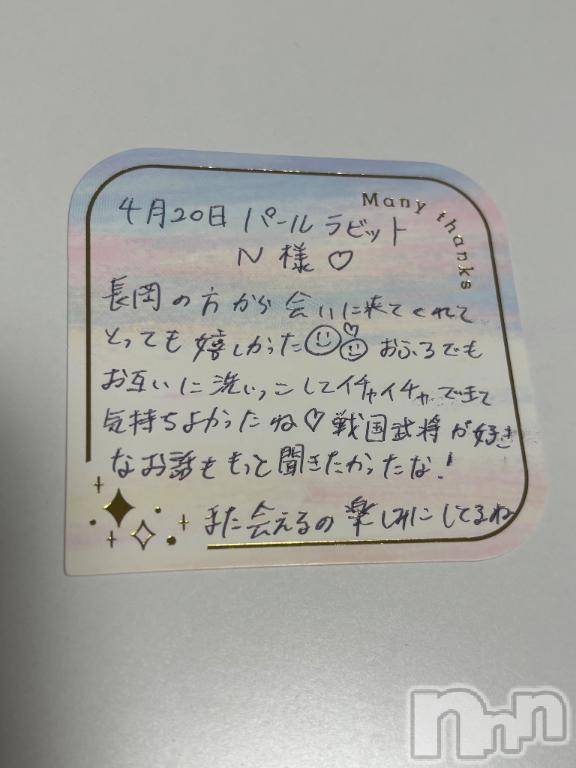 Many thanks
4月20日 パール ラビット
N 様♡
長岡の方から会いに来てくれて
とっても嬉しかった おふろでも
お互いに洗いっこしてイチャイチャできて
気持ちよかったね♡戦国武将が好き
なお話ももっと聞きたかったな!
また会えるの楽しみにしてるね
nnn